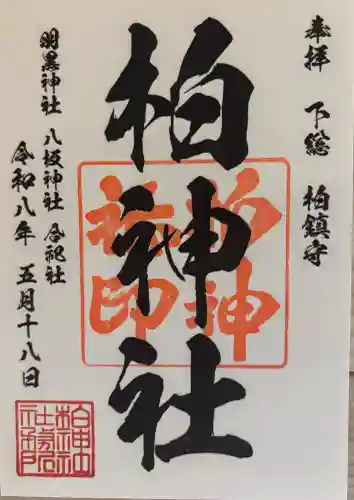 奉拝 下総 柏鎮守
柏神社
羽黒神社 八坂神社 合祀社
令和八年 五月十八日
柏神社印